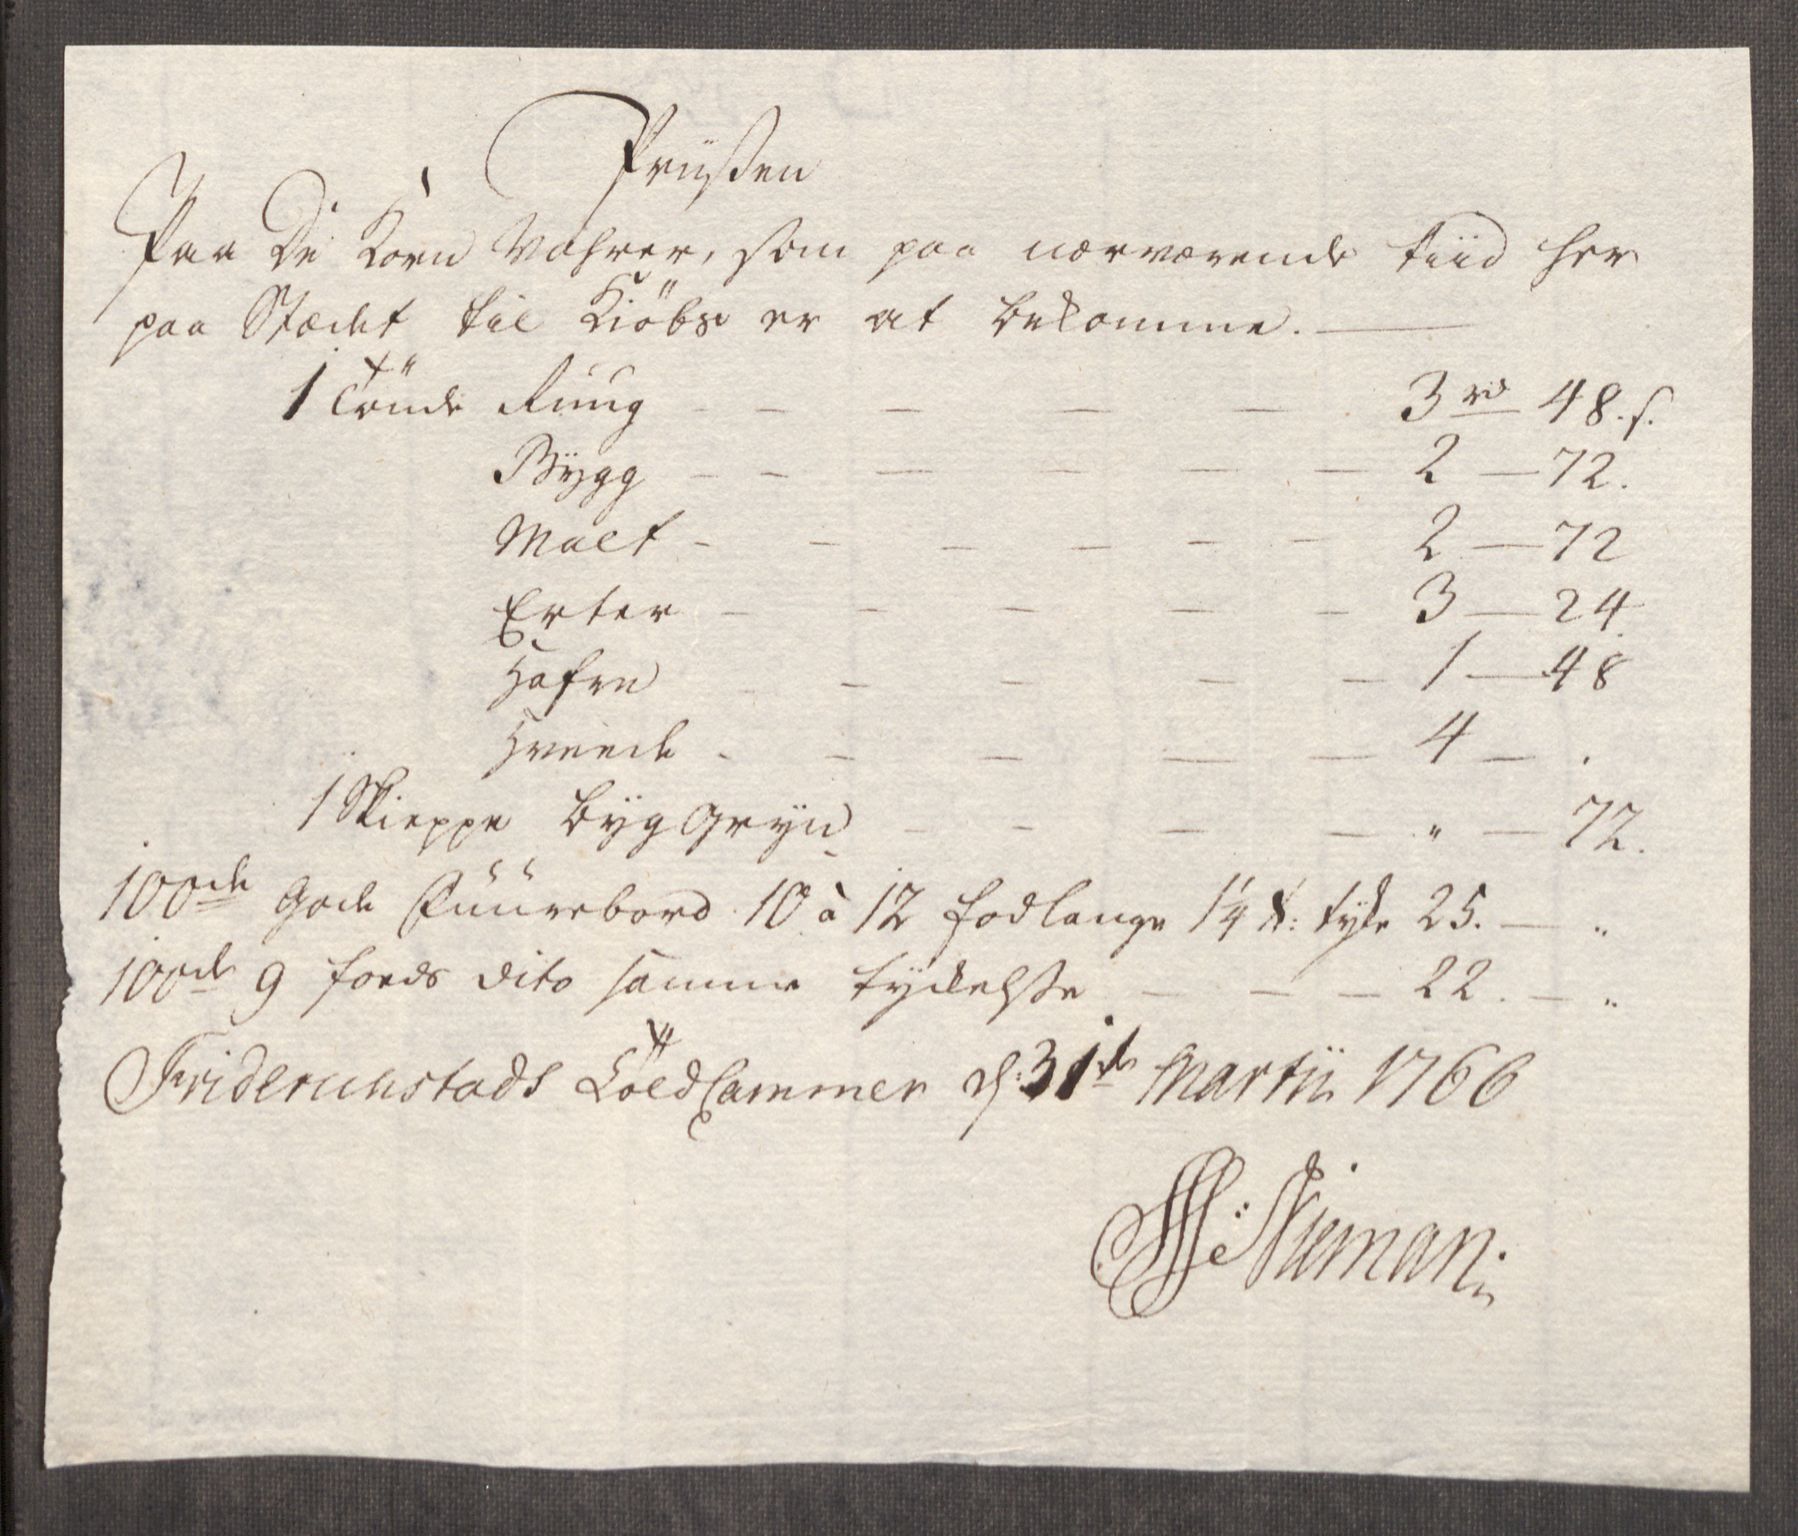 Priisen
Paa De Korn Vahrer, som paa nærværende tiid her
paa Stædet til Kiöbs er at bekomme.
1 Tönde Ruug - - - - - 3 rd 48 s.
Bÿgg - - - - - - 2 - 72.
Malt - - - - - - 2 - 72
Erter - - - - - 3 - 24.
Hafre - - - - - 1 - 48
Hveede - - - - - 4 - .
1 Skieppe byg Gryn - - - - " - 72.
100de Gode Fuurebord 10 à 12 fod lange 1 1/4 t: tyke 25. - "
100de 9 foeds dito samme tyckelse - - - 22. - "
Friderichstads Toldcammer d: 31te Martii 1766
Niman